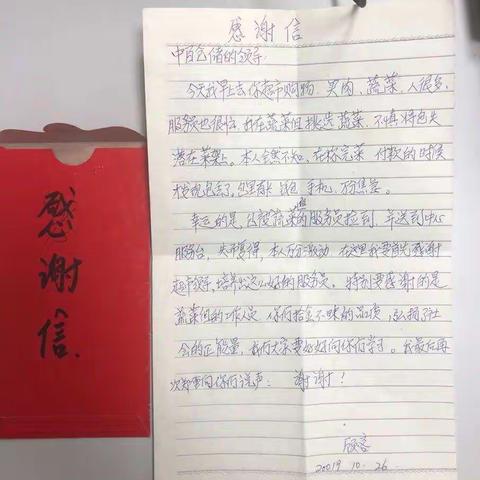 感谢信
感谢信
中百仓储的领导:
今天我早上去你超市购物、买肉、蔬菜、人很多,
服务也很忙。我在蔬菜组挑选蔬菜,不慎将包失
落在菜架。本人全然不知,在你完菜付款的时候
发现包丢了,包里有 钱包、手机、万分焦急。
幸运的是,包被蔬菜的服务员捡到,并送到中心
服务台,失而复得,本人万分激动,在这里我要首先感谢
超市领导,培养出这么好的服务员。特别要感谢的是
蔬菜组的工作人员 你们拾金不昧的品质,弘扬了社
会的正能量,我们大家要好好向你们学习。我最后再
次郑重向你们说声: 谢谢!
顾客
2019 10. 26